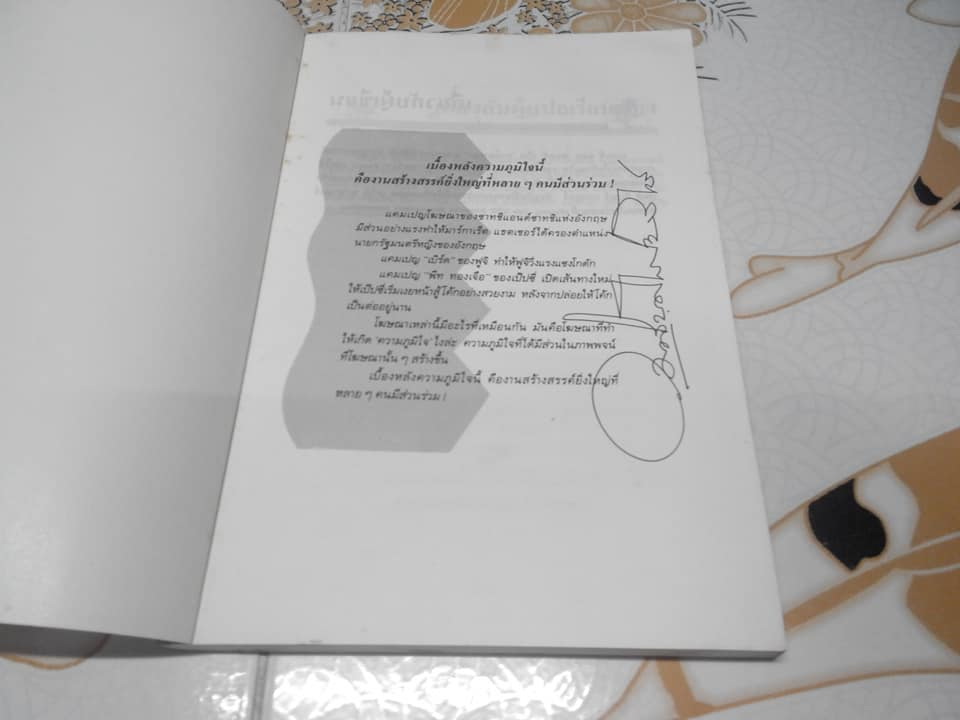 เบื้องหลังความภูมิใจนี้
คืองานสร้างสรรค์ยิ่งใหญ่ที่หลาย ๆ คนมีส่วนร่วม !
แคมเปญโฆษณาของซาทชิแอนด์ซาทชิแห่งอังกฤษ
มีส่วนอย่างแรงทำให้มาร์กาเร็ต แธตเชอร์ได้ครองตำแหน่ง
นายกรัฐมนตรีหญิงของอังกฤษ
แคมเปญ "เบิร์ด" ของฟูจิ ทำให้ฟูจิวิ่งแรงแซงโกดัก
แคมเปญ "พีท ทองเจือ" ของเป๊ปซี่ เปิดเส้นทางใหม่
ให้เป๊ปซี่เริ่มเงยหน้าสู้โค้กอย่างสวยงาม หลังจากปล่อยให้โค้ก
เป็นต่ออยู่นาน
โฆษณาเหล่านี้มีอะไรที่เหมือนกัน มันคือโฆษณาที่ทำ
ให้เกิด 'ความภูมิใจ' ไงล่ะ ความภูมิใจที่ได้มีส่วนในภาพพจน์
ที่โฆษณานั้น ๆ สร้างขึ้น
เบื้องหลังความภูมิใจนี้ คืองานสร้างสรรค์ยิ่งใหญ่ที่
หลาย ๆ คนมีส่วนร่วม !